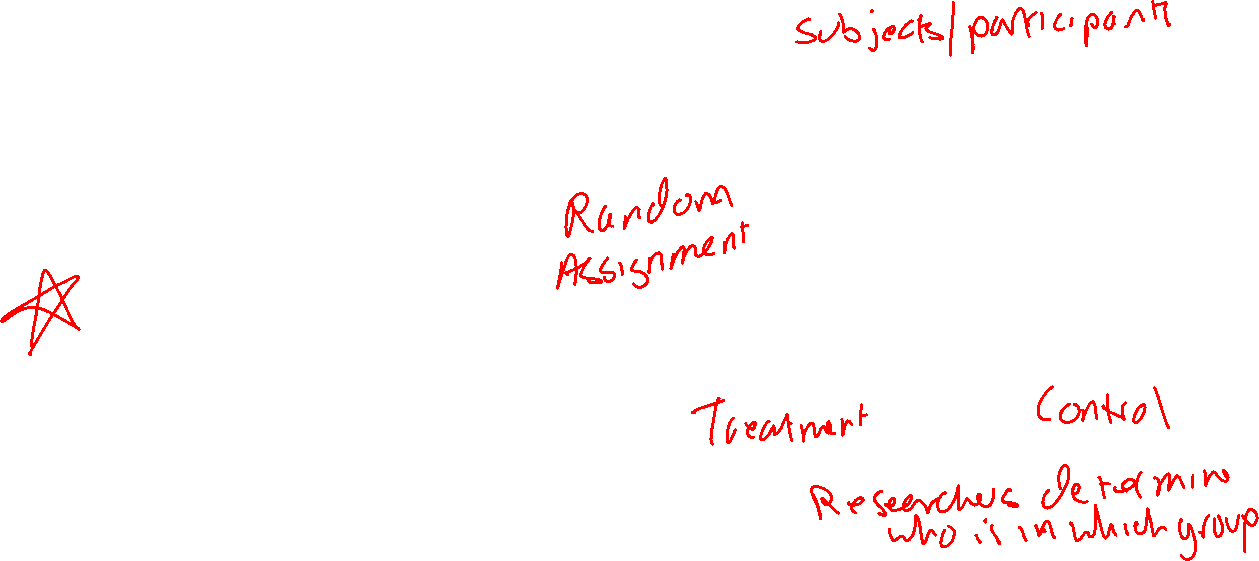 subjects/participant
Random
Assignment
Treatment
Control
Researchers determine
who is in which group